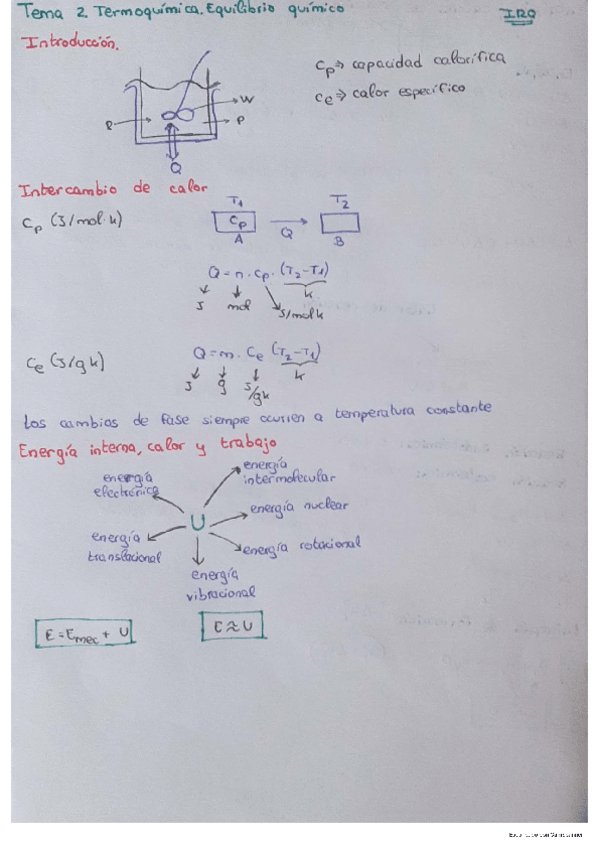 Tema 2. Termoquímica. Equilibrio químico
IRQ
Introducción.
Cp ⇒ capacidad calorífica
Ce ⇒ calor específico
W
P
Q
Intercambio de calor
Cp (J/mol·k)
T1
T2
Cp
Q
A
B
Q = n · Cp · (T2-T1)
J
mol
J/mol k
k
Ce (J/g k)
Q = m · Ce (T2-T1)
J
g
J/gk
k
Los cambios de fase siempre ocurren a temperatura constante
Energía interna, calor y trabajo
energía electrónica
energía intermolecular
energía nuclear
U
energía translacional
energía rotacional
energía vibracional
E = Emec + U
E ≈ U